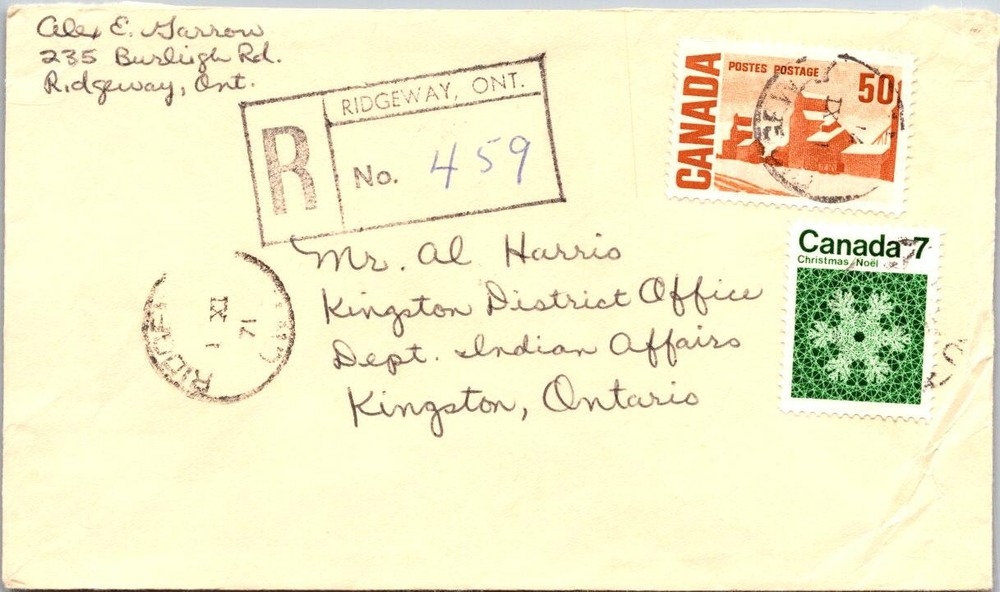 Alex E. Garrow
235 Burleigh Rd.
Ridgeway, Ont.
R
RIDGEWAY, ONT.
No. 459
CANADA
POSTES POSTAGE
50
Canada 7
Christmas Noël
Mr. Al Harris
Kingston District Office
Dept. Indian Affairs
Kingston, Ontario
IX
71